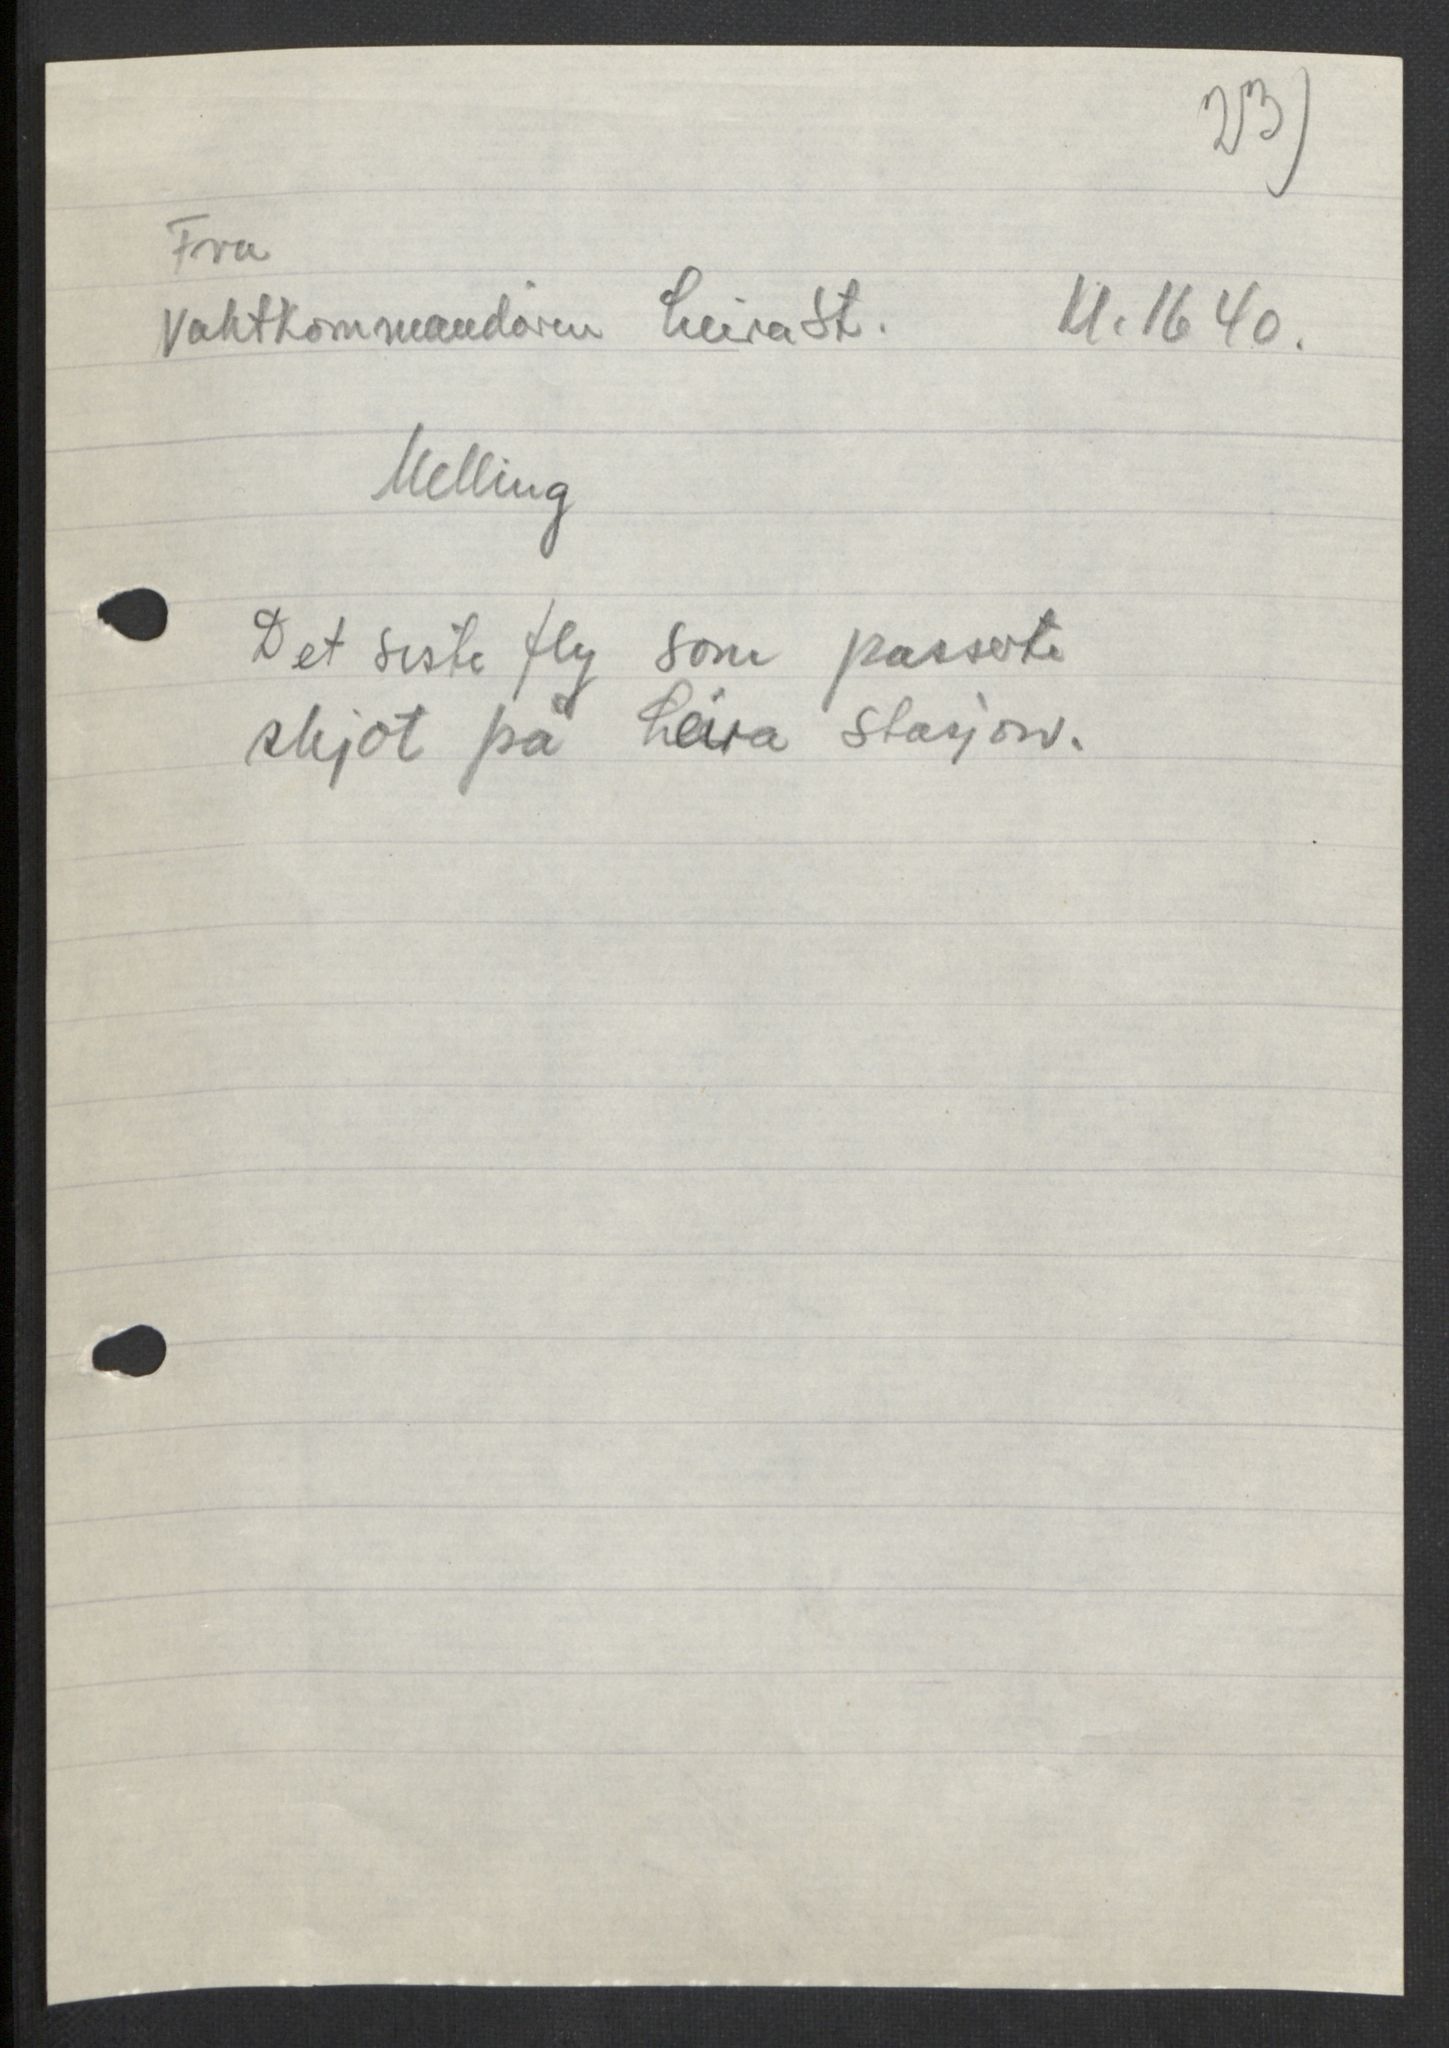 23)
Fra
Vahtkommandøren Leira St. Kl. 16 40.
Melling
Det siste fly som passerte
skjøt på Leira stasjon.